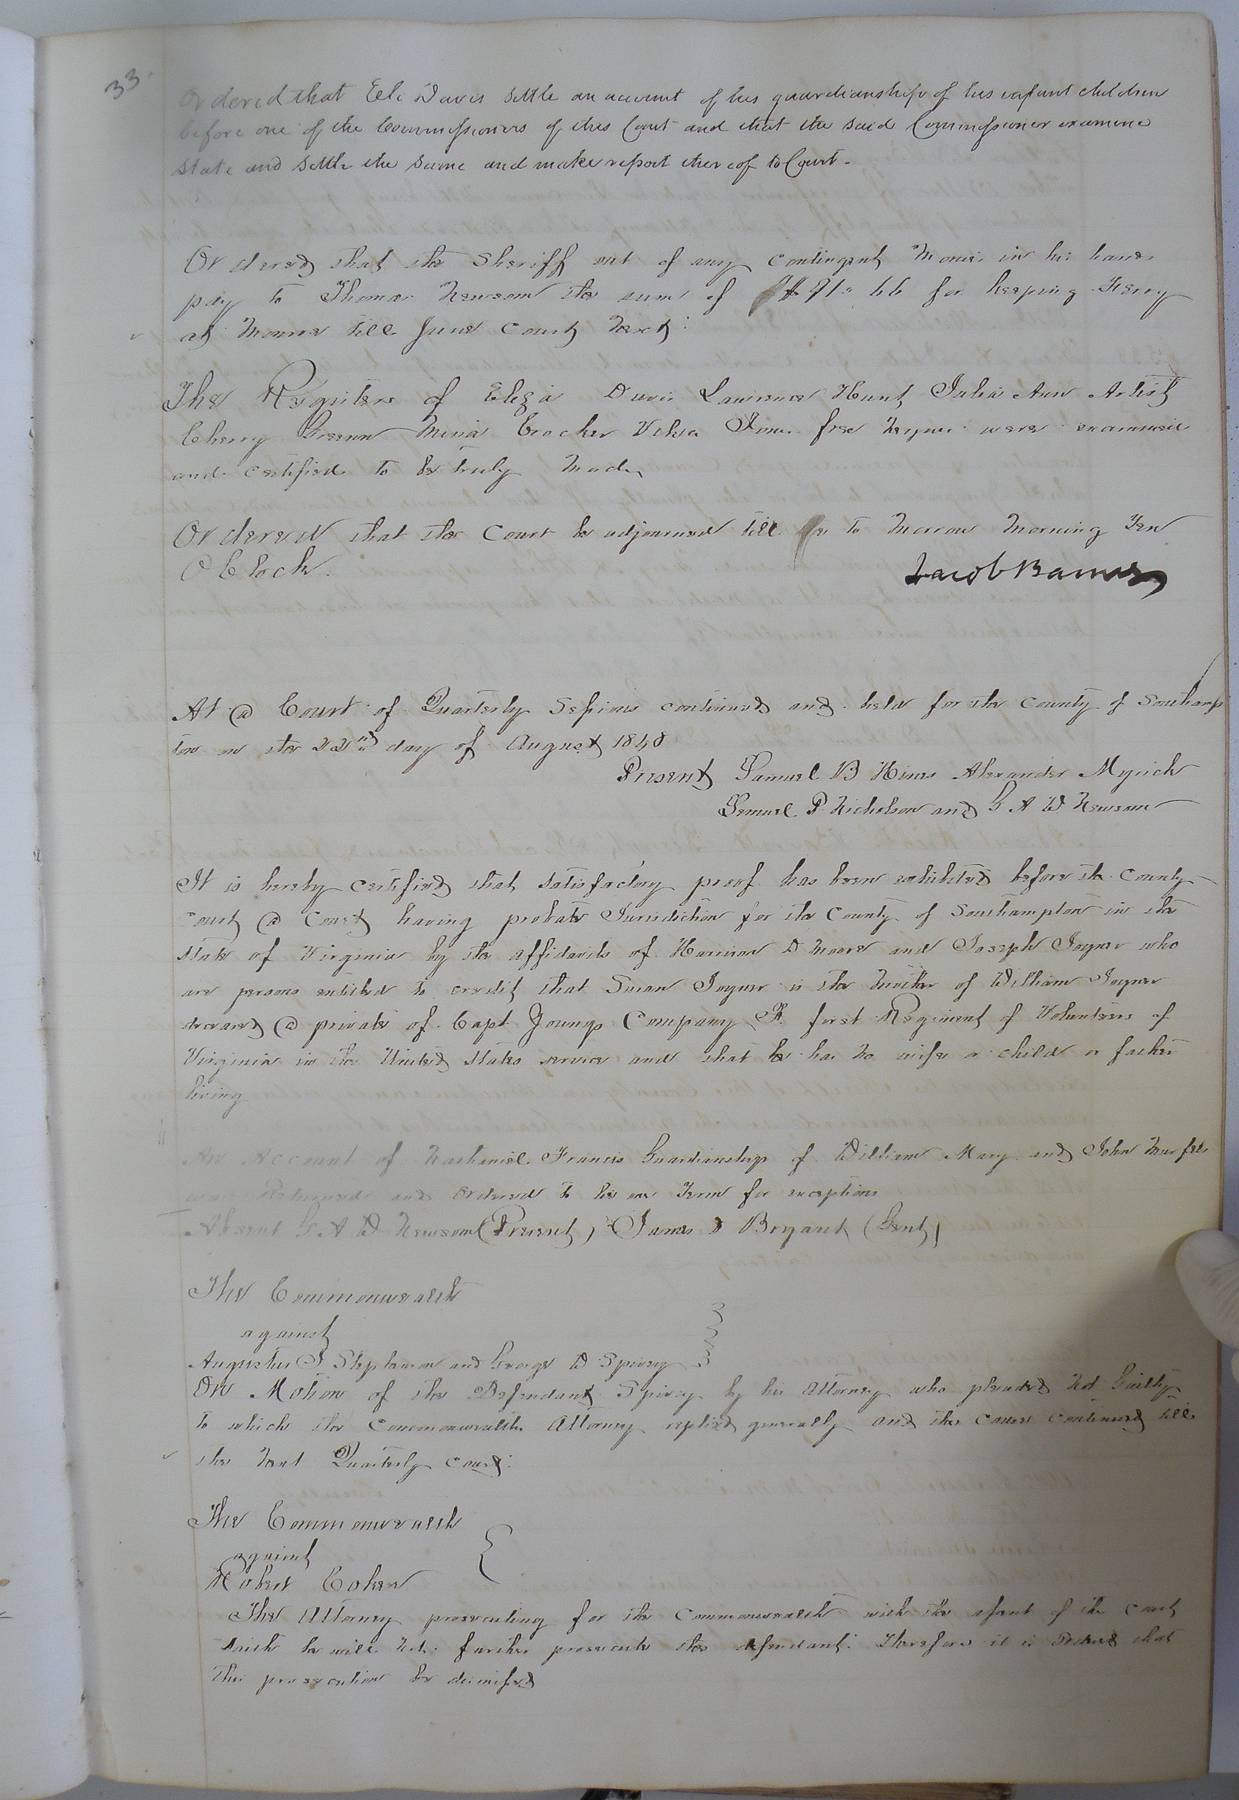 33.
Ordered that Eli Davis settle an account of his guardianship of his infant children
before one of the Commissioners of this Court and that the said Commissioner examine
state and settle the same and make report thereof to Court.
Ordered that the Sheriff out of any contingent monies in his hands
pay to Thomas Newsom the sum of for keeping Ferry
at Monroe till June Court Next
The Registers of Eliza Davis Lawrence Hunt Julia Ann Artist
Cherry Green Crocker free Negroes were examined
and certified to be truly Made
Ordered that the Court be adjourned till to Morrow Morning Ten
O Clock.
Jacob Barnes
At a Court of Quarterly Sessions continued and held for the County of Southamp
ton on the 22nd day of August 1848
Present Samuel B Hines Alexander Myrick
Samuel P Nicholson and G A W Newsom
It is hereby certified that satisfactory proof has been exhibited before the County
Court a Court having probate Jurisdiction for the County of Southampton in the
State of Virginia by the affidavits of Harrison D Moore and Joseph Joyner who
are persons entitled to credit that Susan Joyner is the Mother of William Joyner
deceased a private of Capt Youngs Company R. first Regiment of Volunteers of
Virginia in the United States service and that he has no wife or child or father
living
An Account of Nathaniel Francis Guardianship of William Mary and John
was Returned and Ordered to lie one Term for exceptions
Absent G A W Newsom (Present) James D Bryant (Gent)
The Commonwealth
against
Augustus J Stephenson and George W Spivey
On Motion of the Defendant Spivey by his Attorney who pleaded Not Guilty
to which the Commonwealths Attorney replied generally and the cause continued till
the next Quarterly Court.
The Commonwealth
against
Robert Coker
The Attorney prosecuting for the Commonwealth with the assent of the Court
saith he will not further prosecute the defendant. Therefore it is Ordered that
this prosecution be dismissed